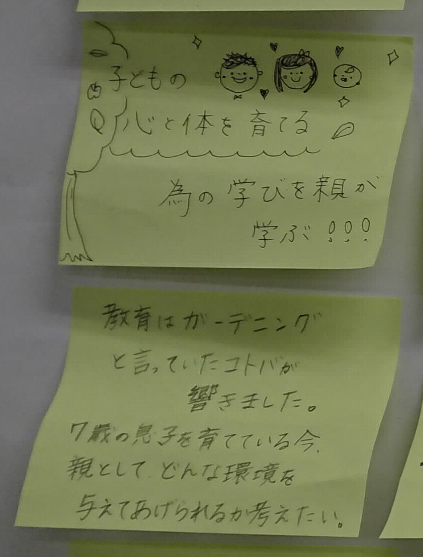 子どもの
心と体を育てる
為の学びを親が
学ぶ!!!
教育はガーデニング
と言っていたコトバが
響きました。
7歳の息子を育てている今、
親として、どんな環境を
与えてあげられるか考えたい。